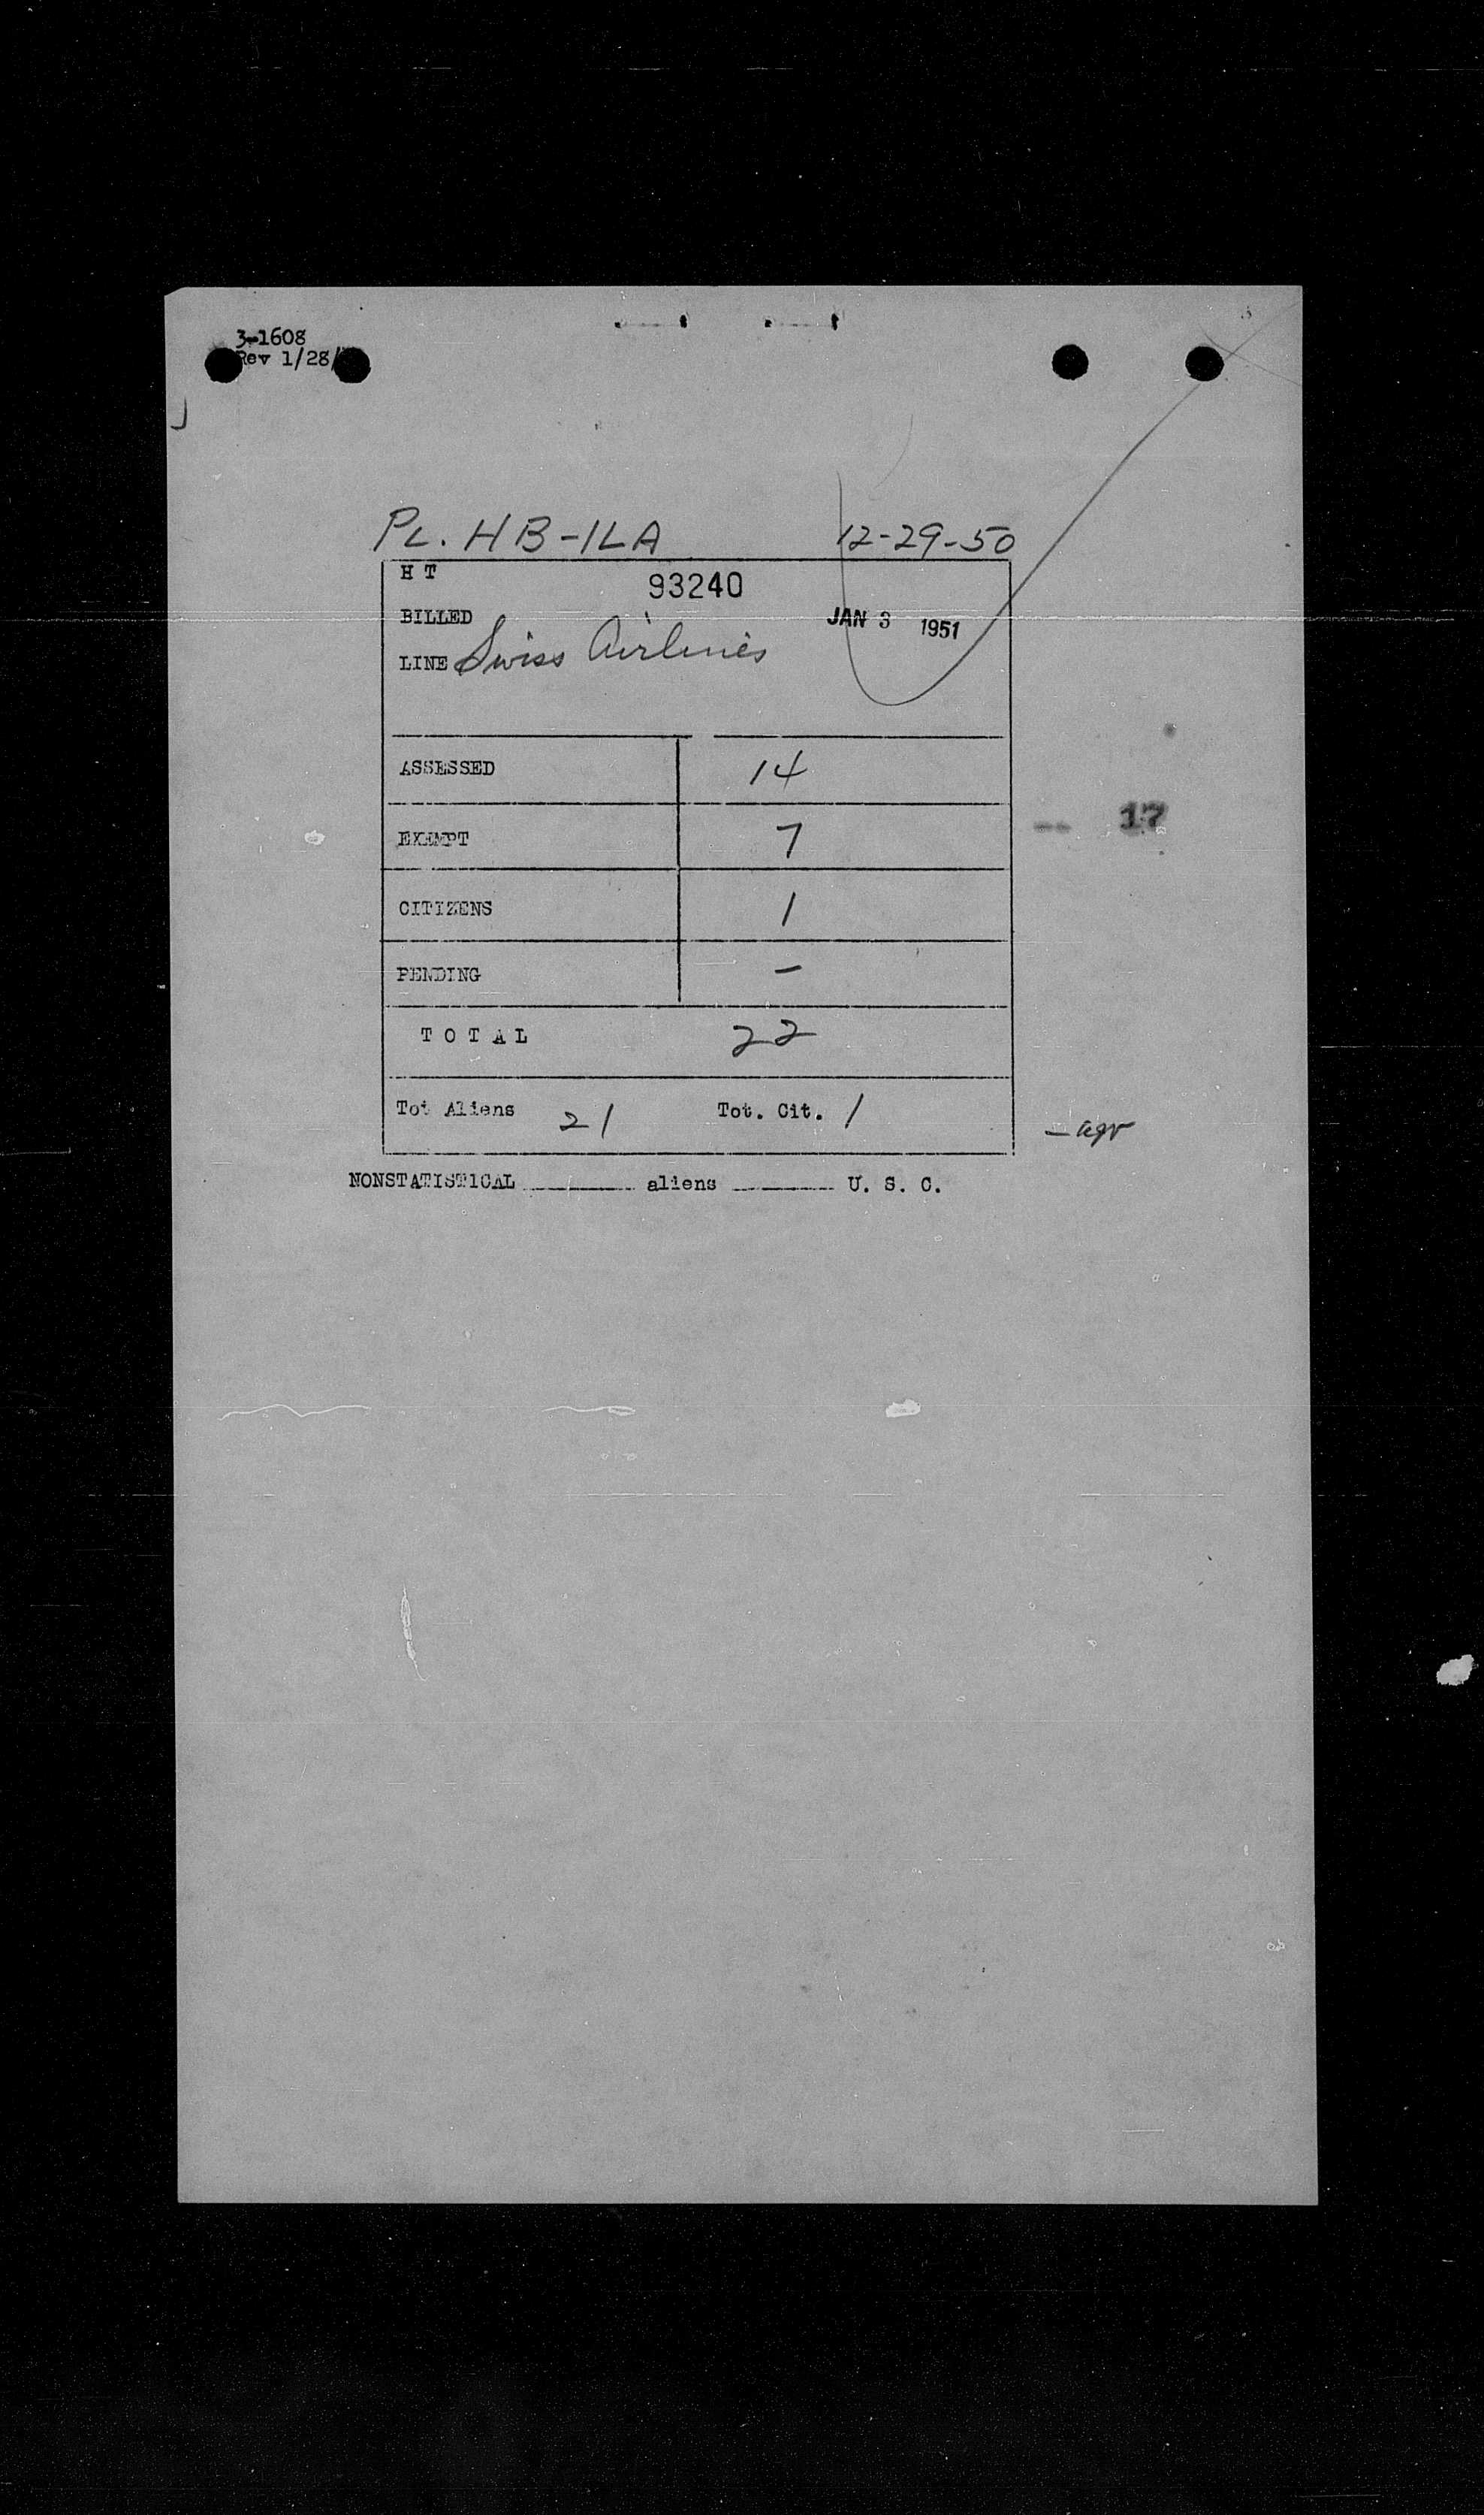 3-1608
Rev 1/28/
PL. HB-ILA 12-29-50
H T 93240
BILLED JAN 3 1951
LINE Swiss Airlines
ASSESSED 14
EXEMPT 7
-- 17
CITIZENS 1
PENDING -
T O T A L 22
Tot Aliens 21 Tot. Cit. 1
NONSTATISTICAL ______ aliens ______ U. S. C.